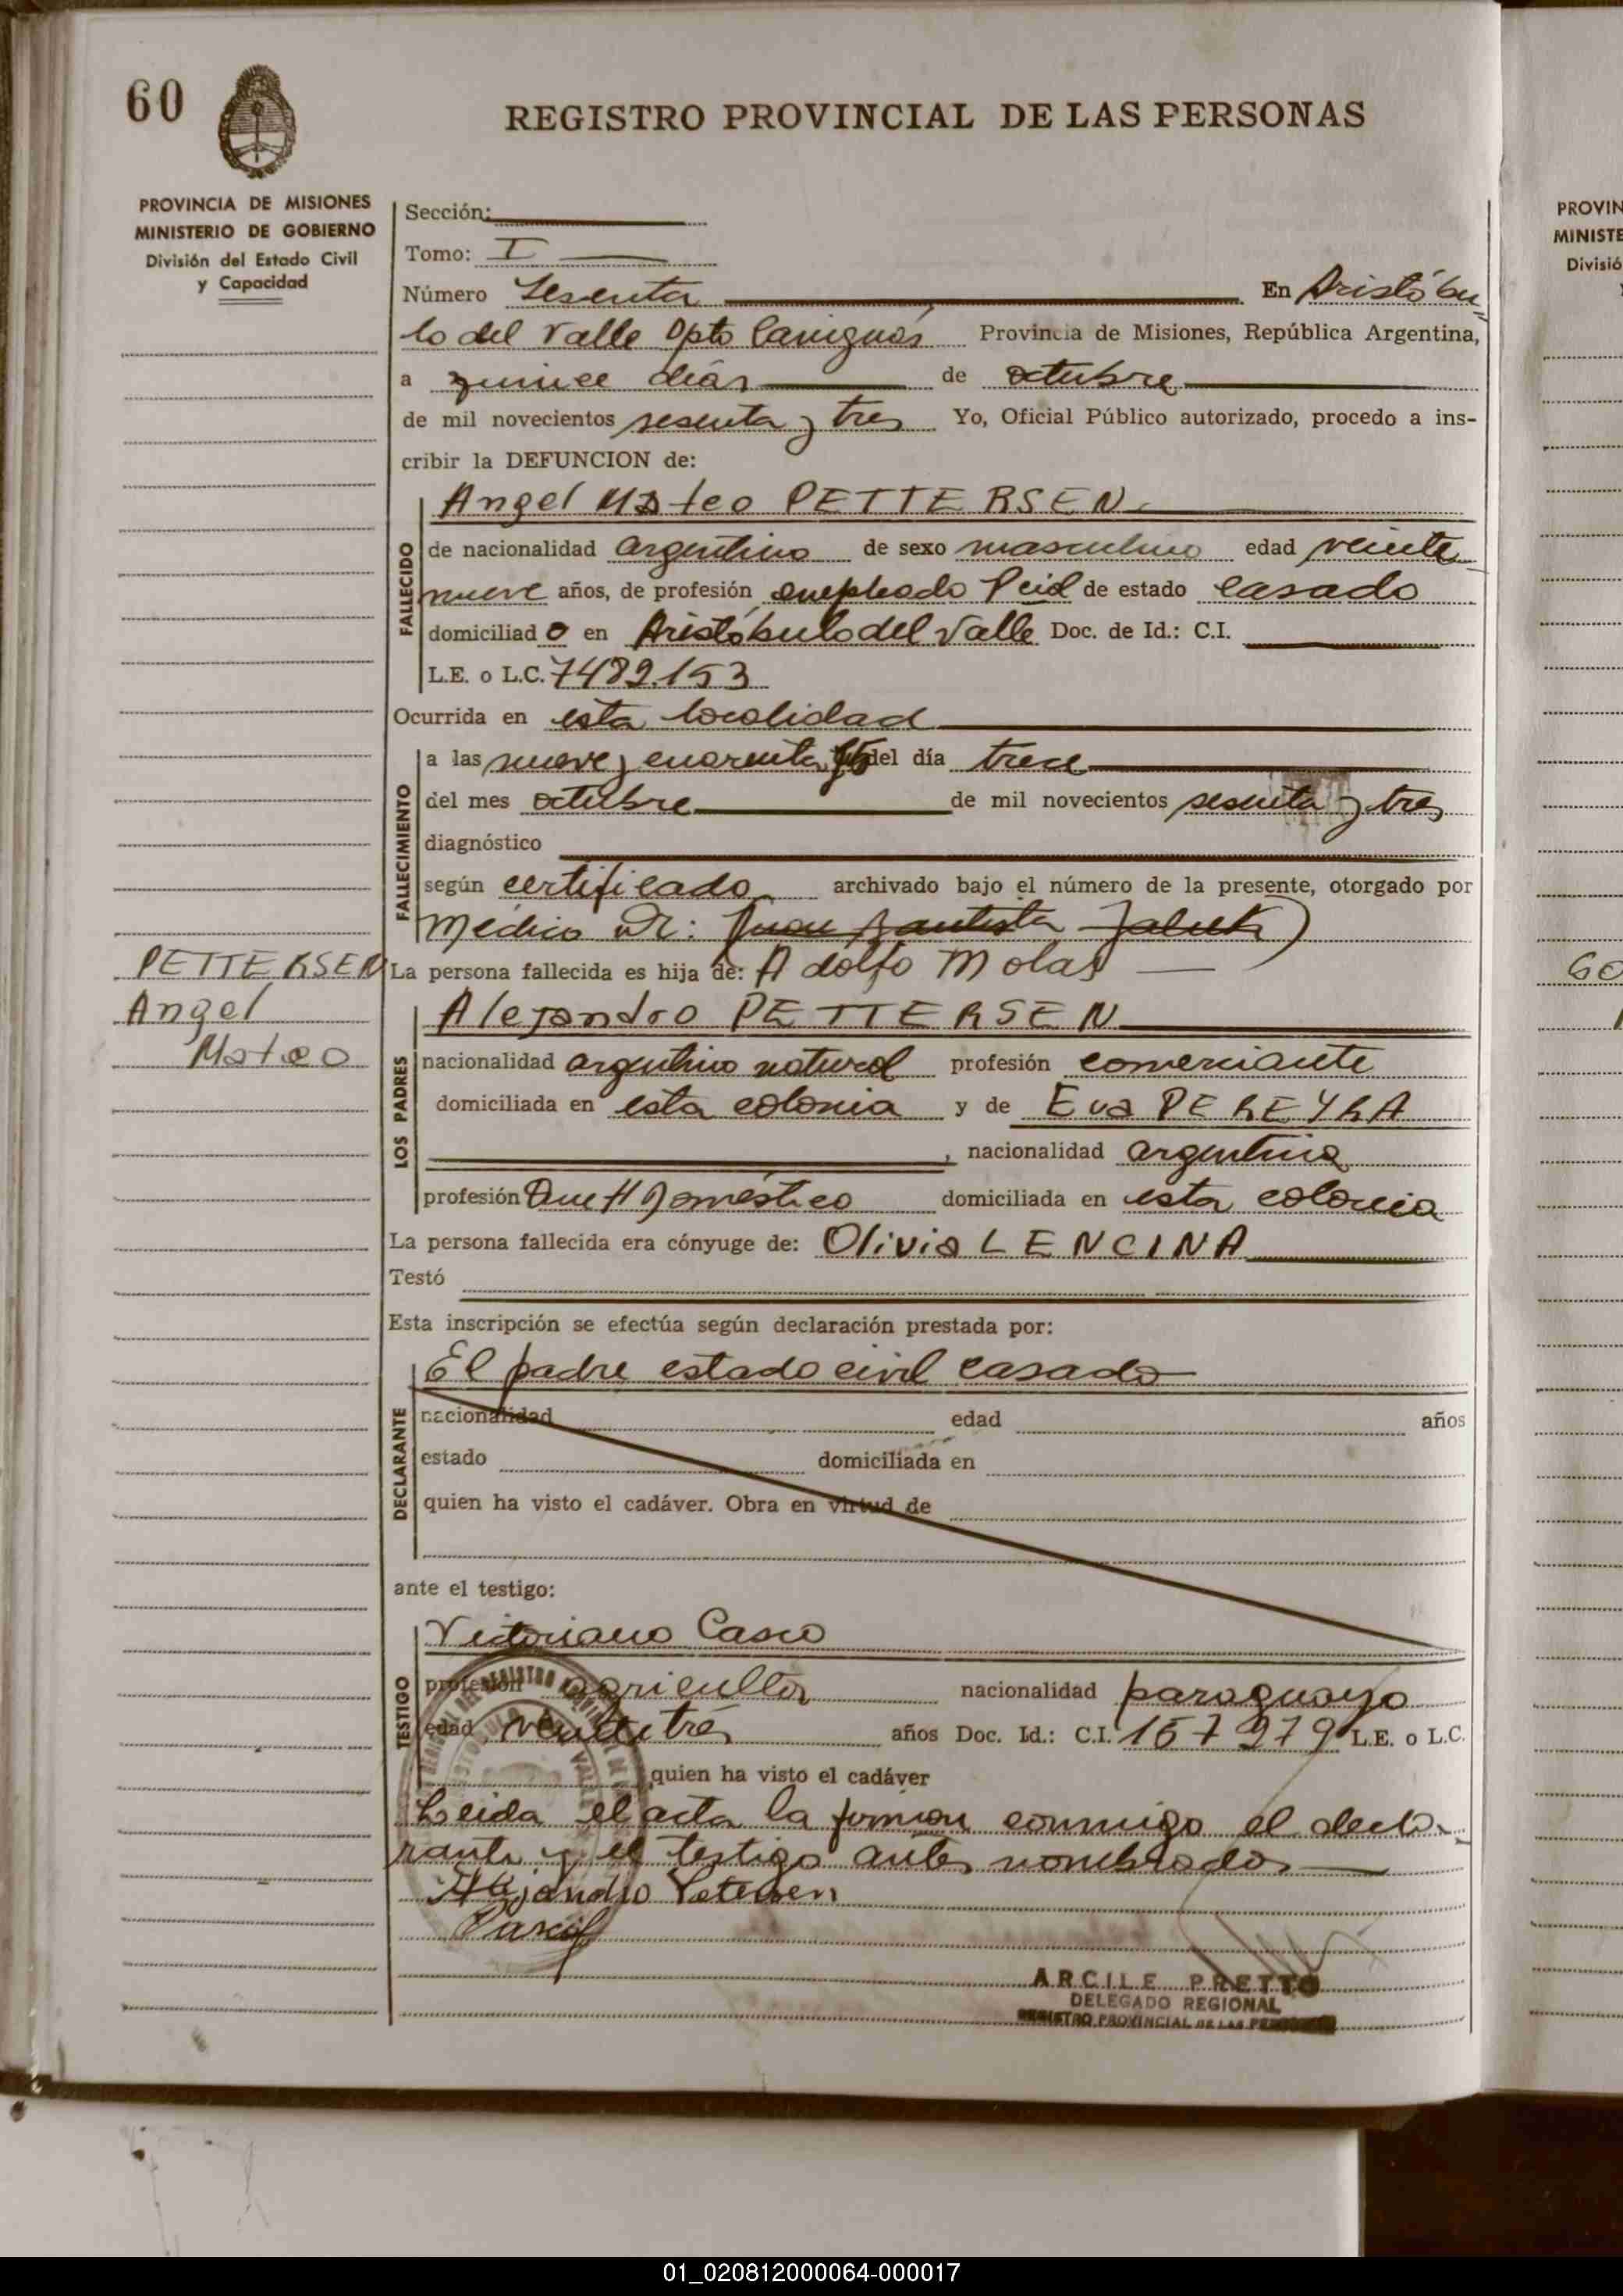 60
REGISTRO PROVINCIAL DE LAS PERSONAS
PROVINCIA DE MISIONES
MINISTERIO DE GOBIERNO
División del Estado Civil
y Capacidad
Sección:
Tomo: I
Número Sesenta En Aristóbu
lo del Valle Dpto Cainguás Provincia de Misiones, República Argentina,
a quince días de octubre
de mil novecientos sesenta y tres Yo, Oficial Público autorizado, procedo a ins-
cribir la DEFUNCION de:
FALLECIDO
Angel Mateo PETTERSEN
de nacionalidad argentino de sexo masculino edad veinte
nueve años, de profesión empleado de estado casado
domiciliado en Aristóbulo del Valle Doc. de Id.: C.I.
L.E. o L.C. 7482.153
Ocurrida en esta localidad
FALLECIMIENTO
a las nueve y cuarenta del día trece
del mes octubre de mil novecientos sesenta y tres
diagnóstico
según certificado archivado bajo el número de la presente, otorgado por
Médico Dr: Juan Bautista
PETTERSEN
Angel
Mateo
La persona fallecida es hija de: Adolfo Molas
LOS PADRES
Alejandro PETTERSEN
nacionalidad argentino natural profesión comerciante
domiciliada en esta colonia y de Eva PEREYRA
, nacionalidad argentina
profesión Que H Doméstico domiciliada en esta colonia
La persona fallecida era cónyuge de: Olivia LENCINA
Testó
Esta inscripción se efectúa según declaración prestada por:
DECLARANTE
El padre estado civil casado
nacionalidad edad años
estado domiciliada en
quien ha visto el cadáver. Obra en virtud de
ante el testigo:
TESTIGO
Victoriano Casco
profesión agricultor nacionalidad paraguayo
edad veintitrés años Doc. Id.: C.I. 157979 L.E. o L.C.
quien ha visto el cadáver
Leida el acta la firman conmigo el decla-
rante y el testigo antes nombrados
Alejandro Petersen
ARCILE PRETTO
DELEGADO REGIONAL
REGISTRO PROVINCIAL DE LAS PERSONAS
PROVIN
MINISTE
Divisió
01_020812000064-000017